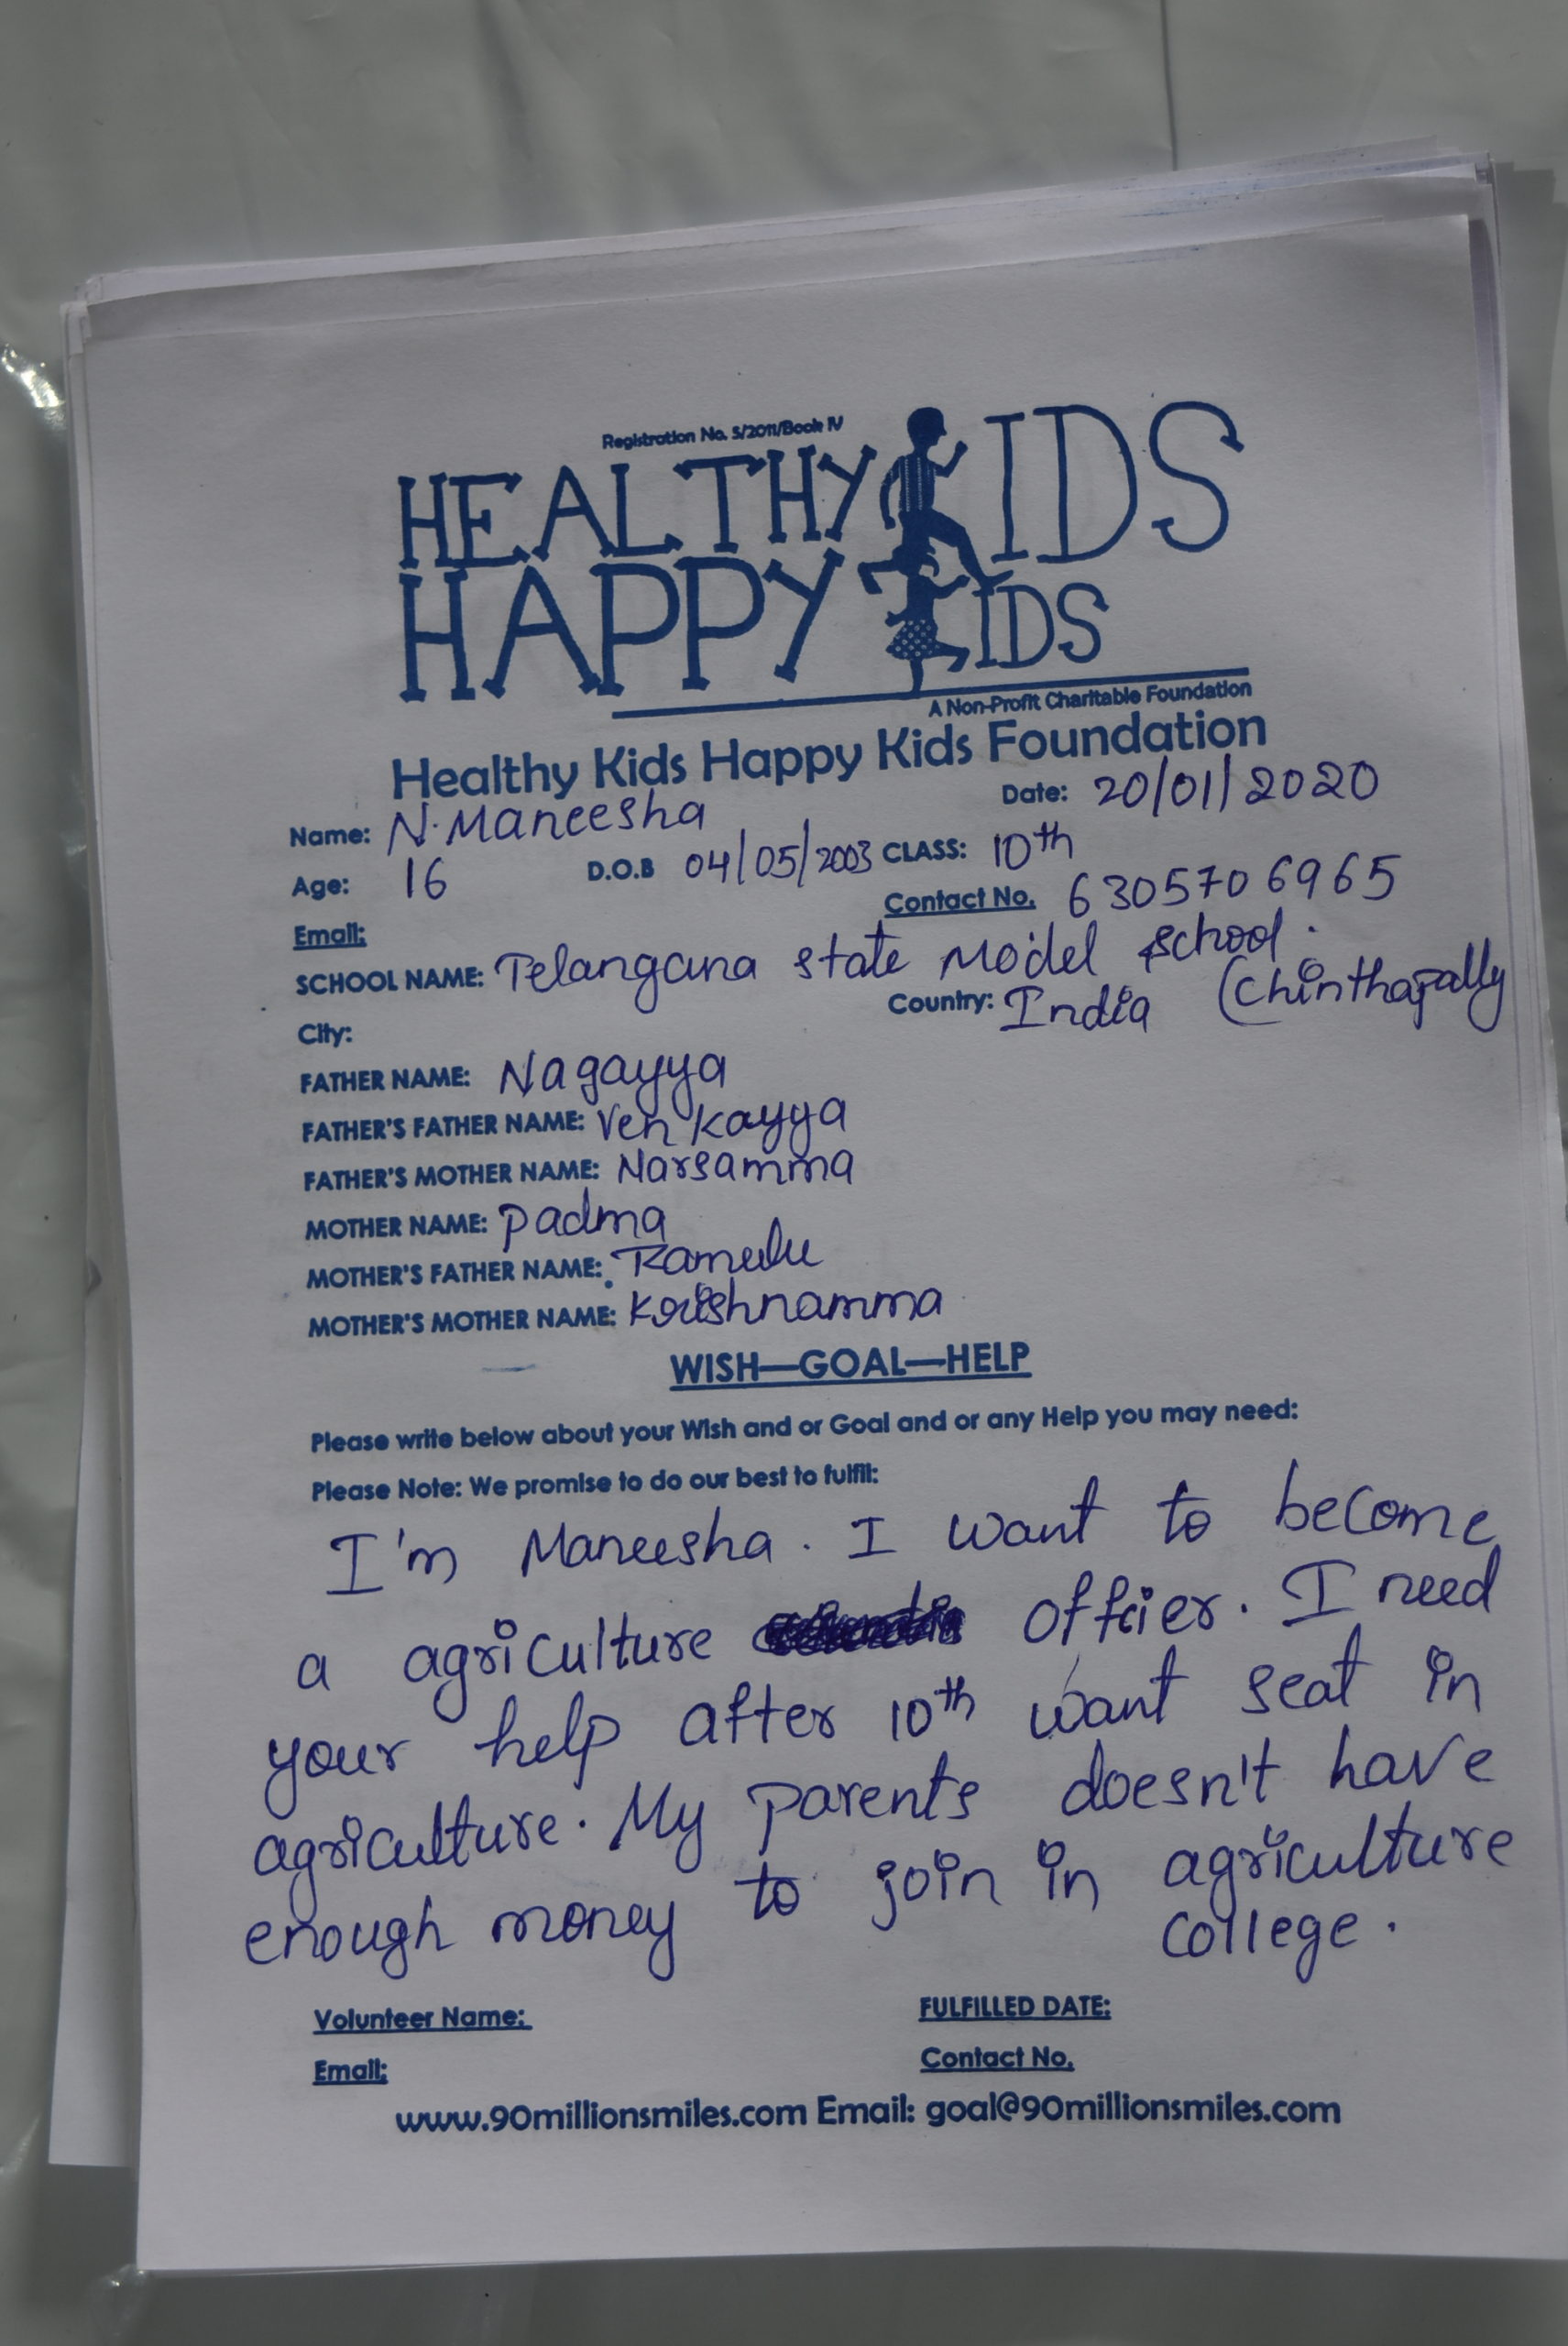 Registration No. 5/2011/Book IV
HEALTHY KIDS
HAPPY KIDS
A Non-Profit Charitable Foundation
Healthy Kids Happy Kids Foundation
Name: N. Maneesha Date: 20/01/2020
Age: 16 D.O.B 04/05/2003 CLASS: 10th
Email: Contact No. 6305706965
SCHOOL NAME: Telangana state Model school.
City: Country: India (Chinthapally
FATHER NAME: Nagayya
FATHER'S FATHER NAME: Venkayya
FATHER'S MOTHER NAME: Narsamma
MOTHER NAME: Padma
MOTHER'S FATHER NAME: Ramulu
MOTHER'S MOTHER NAME: Krishnamma
WISH—GOAL—HELP
Please write below about your Wish and or Goal and or any Help you may need:
Please Note: We promise to do our best to fulfil:
I'm Maneesha. I want to become
a agriculture officier. I need
your help after 10th want seat in
agriculture. My parents doesn't have
enough money to join in agriculture
college.
Volunteer Name: FULFILLED DATE:
Email: Contact No.
www.90millionsmiles.com Email: goal@90millionsmiles.com